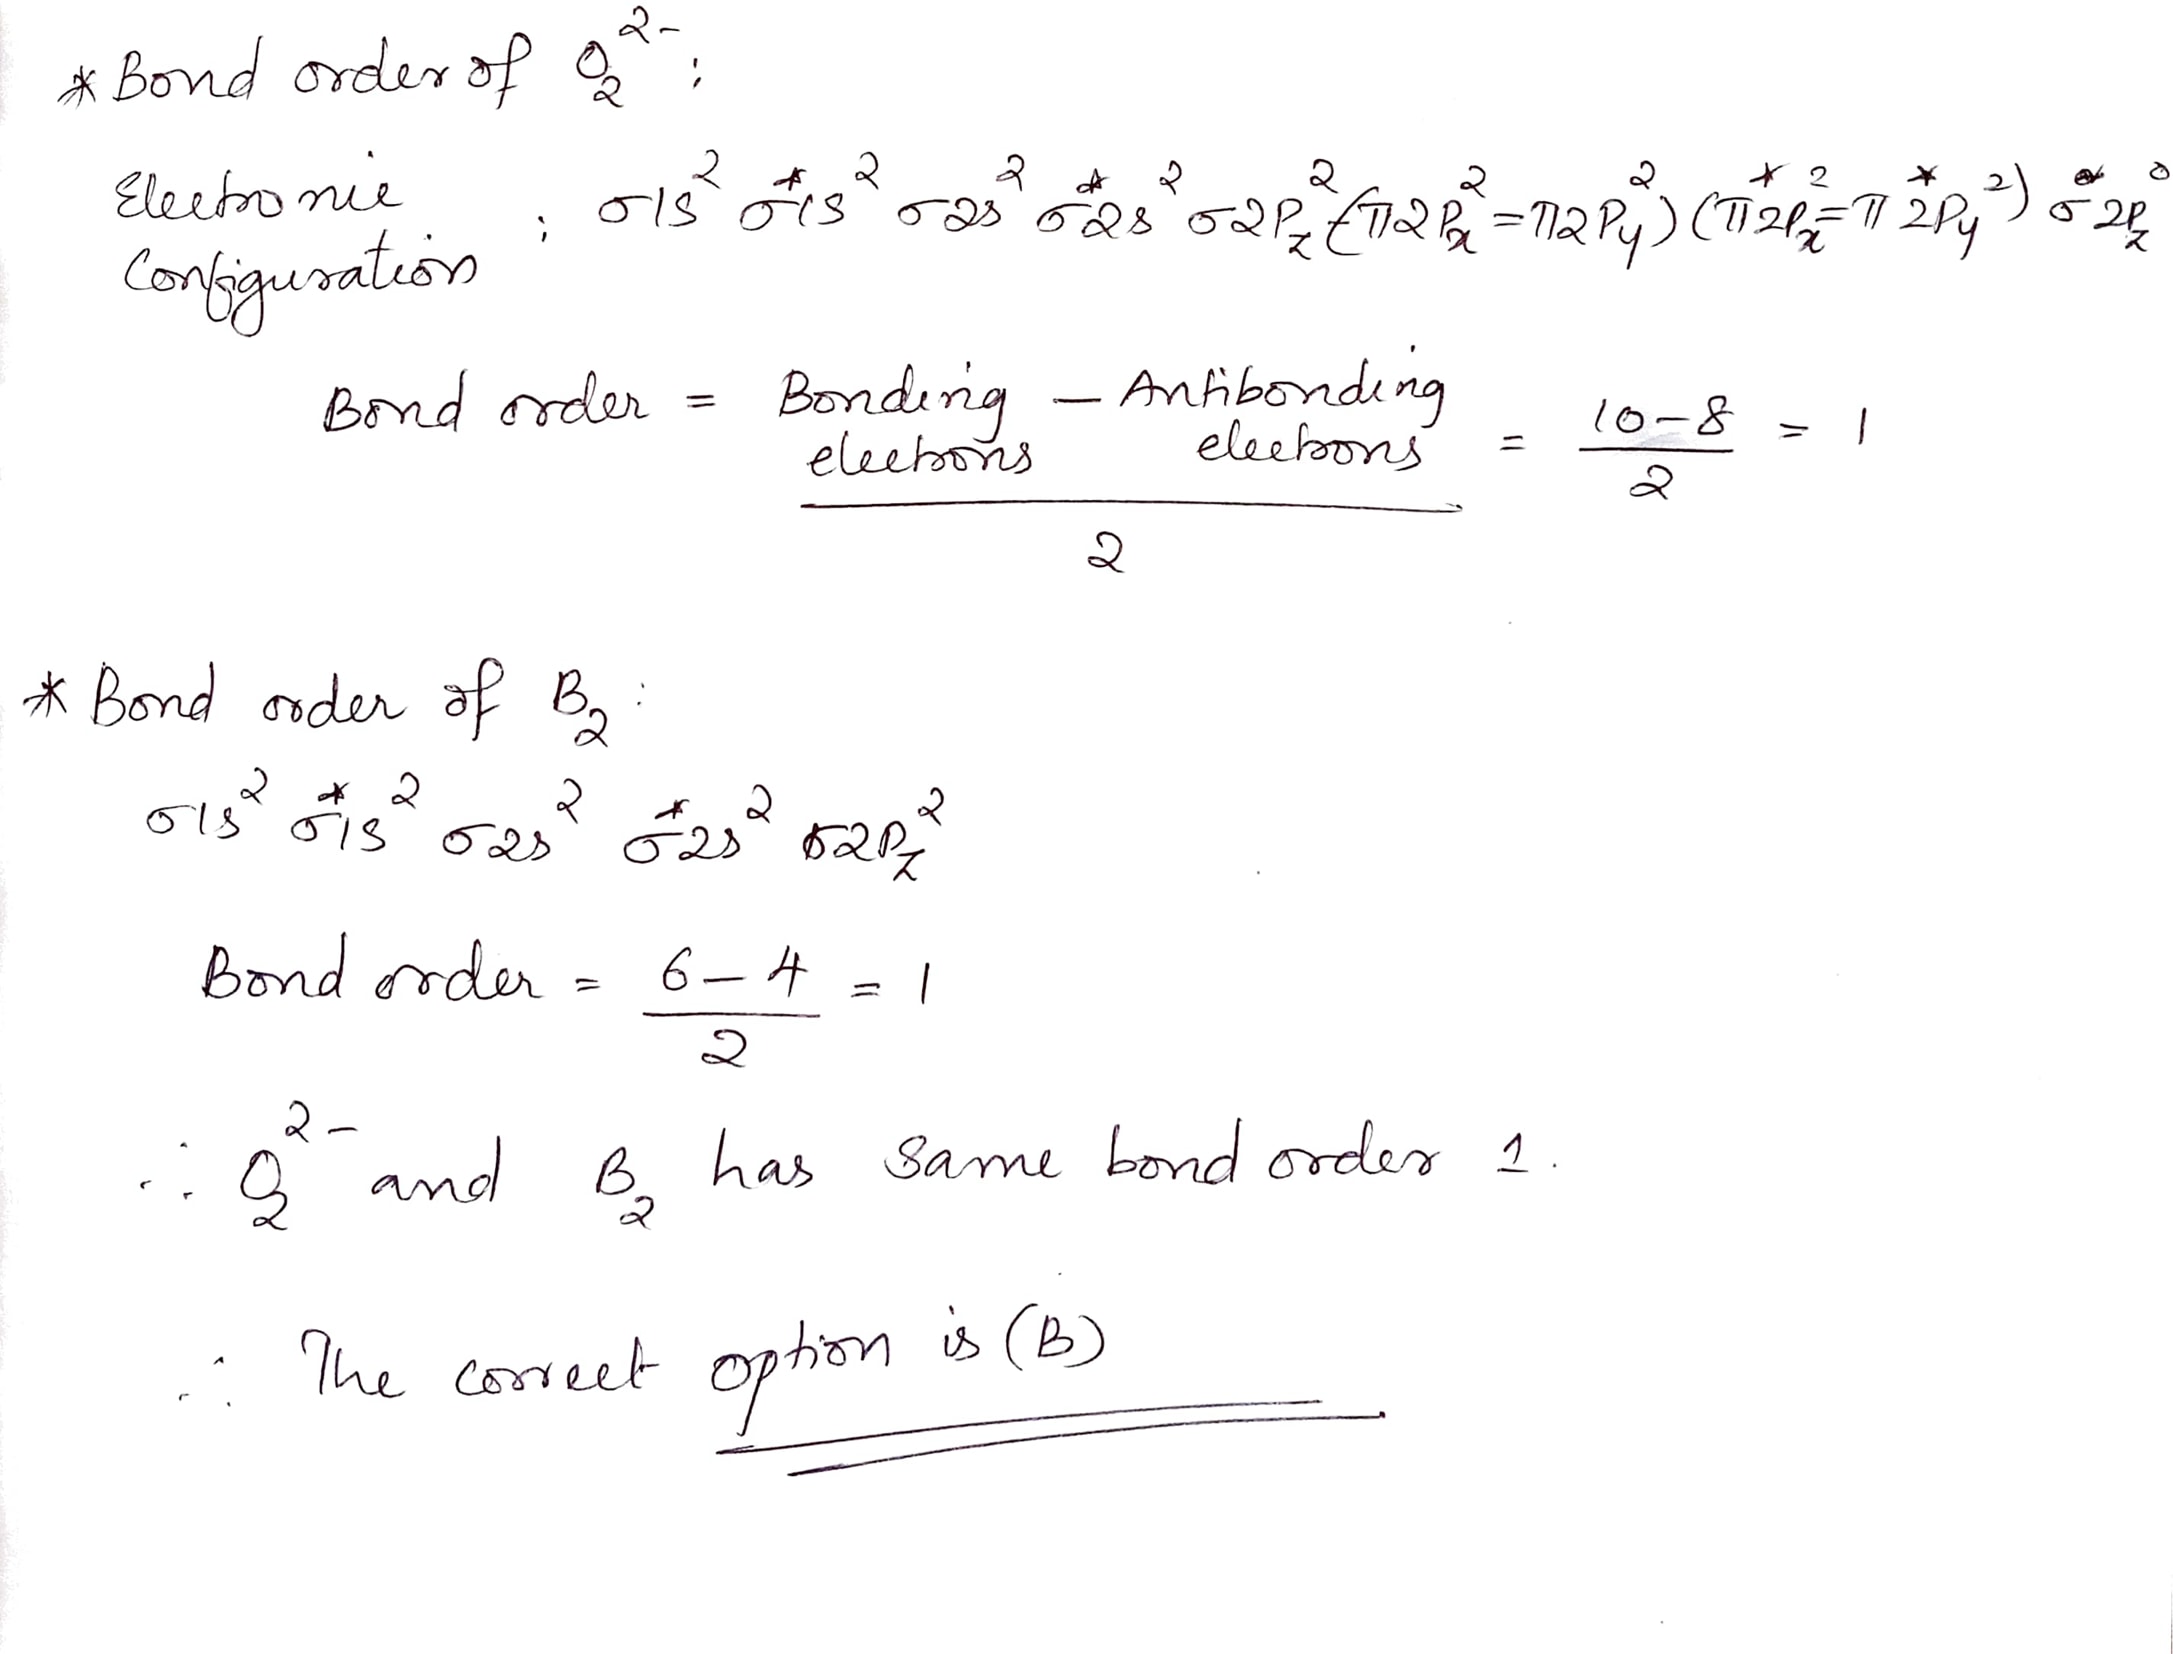 * Bond order of O₂²⁻ :
Electronic Configuration : σ1s² σ*1s² σ2s² σ*2s² σ2P_z² (π2P_x² = π2P_y²) (π*2P_x² = π*2P_y²) σ*2P_z⁰
Bond order = (Bonding electrons – Antibonding electrons) / 2 = (10-8) / 2 = 1
* Bond order of B₂ :
σ1s² σ*1s² σ2s² σ*2s² σ2P_z²
Bond order = (6-4) / 2 = 1
∴ O₂²⁻ and B₂ has same bond order 1.
∴ The correct option is (B)